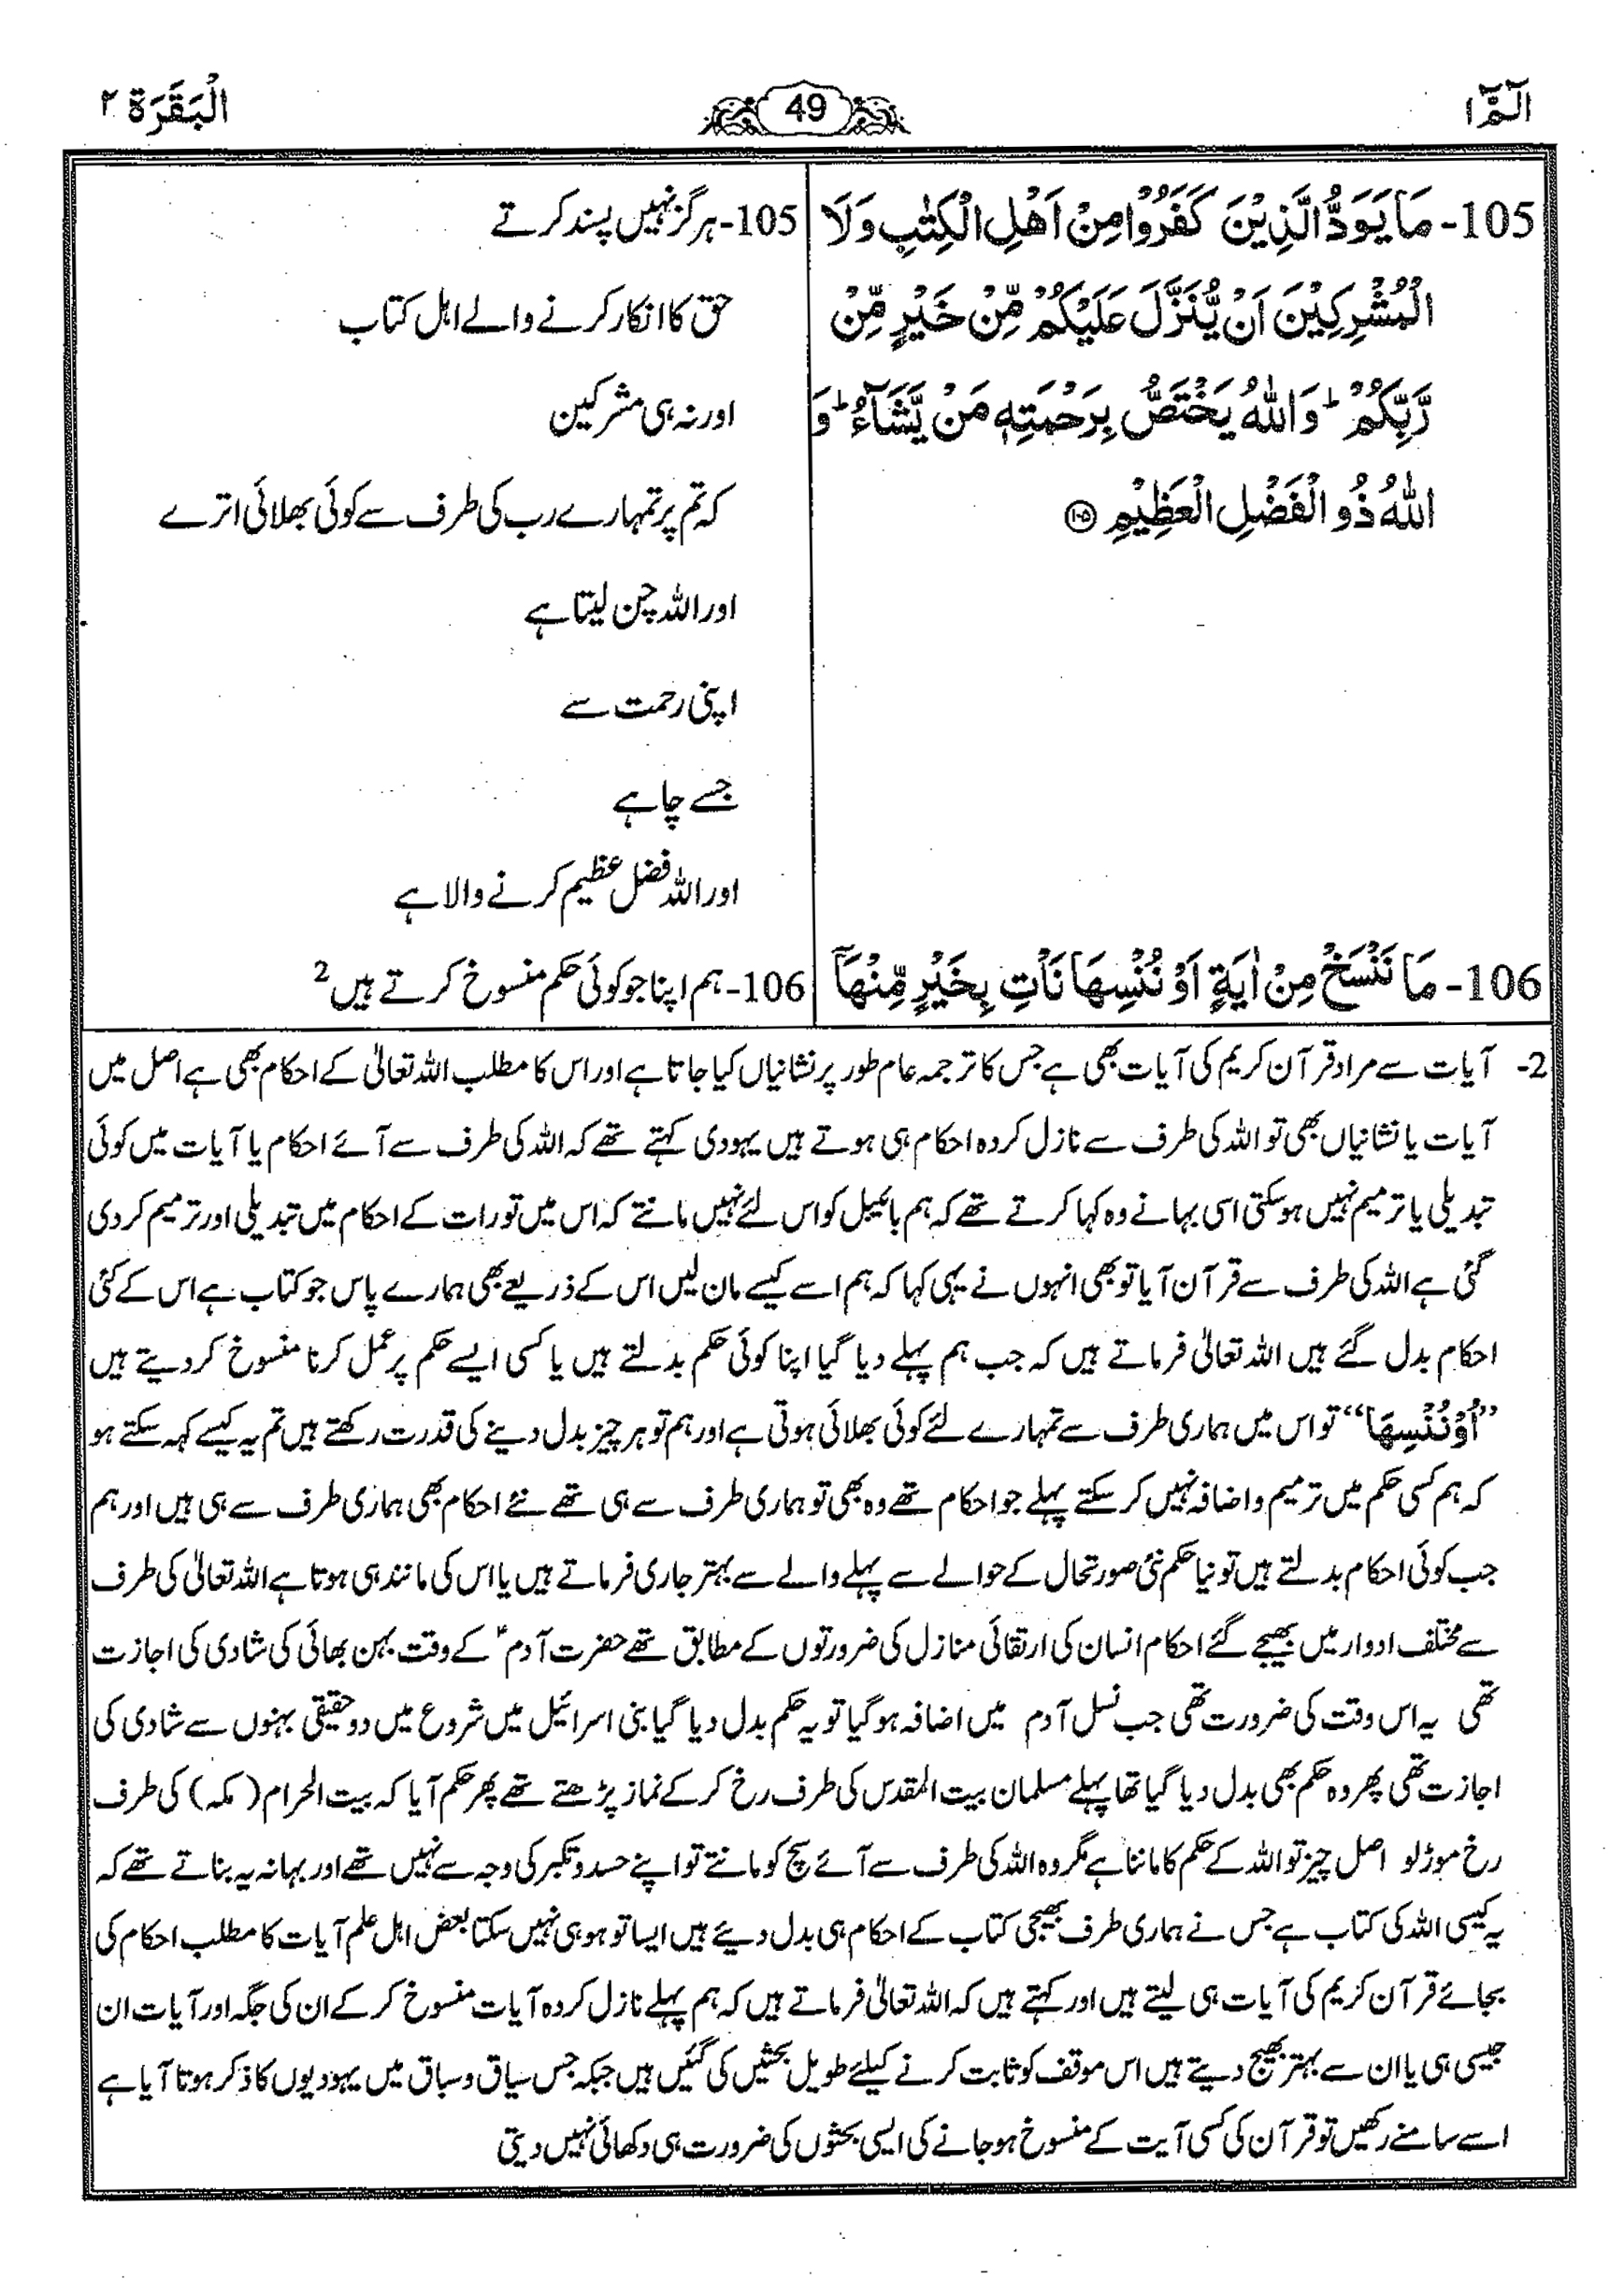 الٓمّٓ ۱
49
الْبَقَرَة ۲
105- مَا يَوَدُّ الَّذِيْنَ كَفَرُوْا مِنْ اَهْلِ الْكِتٰبِ وَلَا
الْمُشْرِكِيْنَ اَنْ يُّنَزَّلَ عَلَيْكُمْ مِّنْ خَيْرٍ مِّنْ
رَّبِّكُمْ ؕ وَاللّٰهُ يَخْتَصُّ بِرَحْمَتِهٖ مَنْ يَّشَآءُ ؕ وَ
اللّٰهُ ذُو الْفَضْلِ الْعَظِيْمِ ۝۱۰۵
106- مَا نَنْسَخْ مِنْ اٰيَةٍ اَوْ نُنْسِهَا نَاْتِ بِخَيْرٍ مِّنْهَآ
105- ہرگز نہیں پسند کرتے
حق کا انکار کرنے والے اہل کتاب
اور نہ ہی مشرکین
کہ تم پر تمہارے رب کی طرف سے کوئی بھلائی اترے
اور اللہ چن لیتا ہے
اپنی رحمت سے
جسے چاہے
اور اللہ فضل عظیم کرنے والا ہے
106- ہم اپنا جو کوئی حکم منسوخ کرتے ہیں 2
2- آیات سے مراد قرآن کریم کی آیات بھی ہے جس کا ترجمہ عام طور پر نشانیاں کیا جاتا ہے اور اس کا مطلب اللہ تعالیٰ کے احکام بھی ہے اصل میں
آیات یا نشانیاں بھی تو اللہ کی طرف سے نازل کردہ احکام ہی ہوتے ہیں یہودی کہتے تھے کہ اللہ کی طرف سے آئے احکام یا آیات میں کوئی
تبدیلی یا ترمیم نہیں ہوسکتی اسی بہانے وہ کہا کرتے تھے کہ ہم بائیبل کو اس لئے نہیں مانتے کہ اس میں تورات کے احکام میں تبدیلی اور ترمیم کردی
گئی ہے اللہ کی طرف سے قرآن آیا تو بھی انہوں نے یہی کہا کہ ہم اسے کیسے مان لیں اس کے ذریعے بھی ہمارے پاس جو کتاب ہے اس کے کئی
احکام بدل گئے ہیں اللہ تعالیٰ فرماتے ہیں کہ جب ہم پہلے دیا گیا اپنا کوئی حکم بدلتے ہیں یا کسی ایسے حکم پر عمل کرنا منسوخ کردیتے ہیں
”اَوْ نُنْسِهَا“ تو اس میں ہماری طرف سے تمہارے لئے کوئی بھلائی ہوتی ہے اور ہم تو ہر چیز بدل دینے کی قدرت رکھتے ہیں تم یہ کیسے کہہ سکتے ہو
کہ ہم کسی حکم میں ترمیم و اضافہ نہیں کرسکتے پہلے جو احکام تھے وہ بھی تو ہماری طرف سے ہی تھے نئے احکام بھی ہماری طرف سے ہی ہیں اور ہم
جب کوئی احکام بدلتے ہیں تو نیا حکم نئی صورتحال کے حوالے سے پہلے والے سے بہتر جاری فرماتے ہیں یا اس کی مانند ہی ہوتا ہے اللہ تعالیٰ کی طرف
سے مختلف ادوار میں بھیجے گئے احکام انسان کی ارتقائی منازل کی ضرورتوں کے مطابق تھے حضرت آدمؑ کے وقت بہن بھائی کی شادی کی اجازت
تھی یہ اس وقت کی ضرورت تھی جب نسل آدم میں اضافہ ہوگیا تو یہ حکم بدل دیا گیا بنی اسرائیل میں شروع میں دو حقیقی بہنوں سے شادی کی
اجازت تھی پھر وہ حکم بھی بدل دیا گیا تھا پہلے مسلمان بیت المقدس کی طرف رخ کر کے نماز پڑھتے تھے پھر حکم آیا کہ بیت الحرام (مکہ) کی طرف
رخ موڑلو اصل چیز تو اللہ کے حکم کا ماننا ہے مگر وہ اللہ کی طرف سے آئے سچ کو مانتے تو اپنے حسد و تکبر کی وجہ سے نہیں تھے اور بہانہ یہ بناتے تھے کہ
یہ کیسی اللہ کی کتاب ہے جس نے ہماری طرف بھیجی کتاب کے احکام ہی بدل دیئے ہیں ایسا تو ہو ہی نہیں سکتا بعض اہل علم آیات کا مطلب احکام کی
بجائے قرآن کریم کی آیات ہی لیتے ہیں اور کہتے ہیں کہ اللہ تعالیٰ فرماتے ہیں کہ ہم پہلے نازل کردہ آیات منسوخ کر کے ان کی جگہ اور آیات ان
جیسی ہی یا ان سے بہتر بھیج دیتے ہیں اس موقف کو ثابت کرنے کیلئے طویل بحثیں کی گئیں ہیں جبکہ جس سیاق و سباق میں یہودیوں کا ذکر ہوتا آیا ہے
اسے سامنے رکھیں تو قرآن کی کسی آیت کے منسوخ ہوجانے کی ایسی بحثوں کی ضرورت ہی دکھائی نہیں دیتی